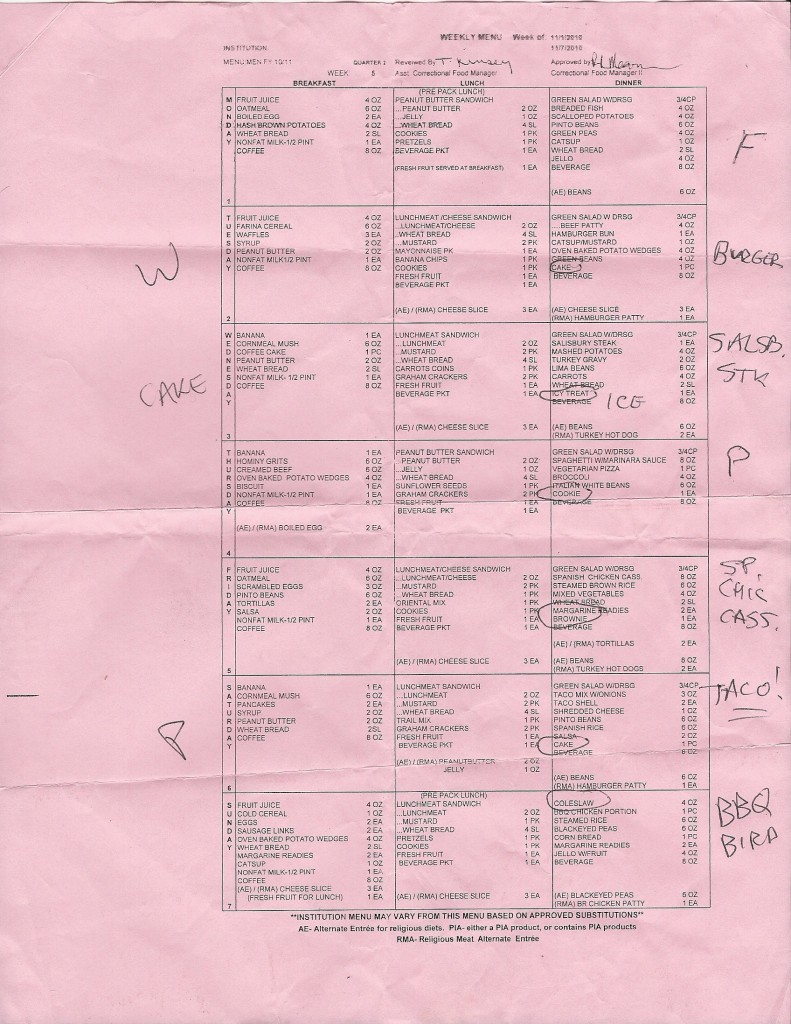 WEEKLY MENU Week of: 11/1/2010
INSTITUTION 11/7/2010
MENU:MEN FY 10/11 QUARTER 2 Reviewed By T. Kimsey Approved by
WEEK 5 Asst. Correctional Food Manager Correctional Food Manager II
BREAKFAST LUNCH DINNER
(PRE PACK LUNCH)
MONDAY
FRUIT JUICE 4 OZ
OATMEAL 6 OZ
BOILED EGG 2 EA
HASH BROWN POTATOES 4 OZ
WHEAT BREAD 2 SL
NONFAT MILK-1/2 PINT 1 EA
COFFEE 8 OZ
PEANUT BUTTER SANDWICH
...PEANUT BUTTER 2 OZ
...JELLY 1 OZ
...WHEAT BREAD 4 SL
COOKIES 1 PK
PRETZELS 1 PK
BEVERAGE PKT 1 EA
(FRESH FRUIT SERVED AT BREAKFAST) 1 EA
GREEN SALAD W/DRSG 3/4CP
BREADED FISH 4 OZ
SCALLOPED POTATOES 4 OZ
PINTO BEANS 6 OZ
GREEN PEAS 4 OZ
CATSUP 1 OZ
WHEAT BREAD 2 SL
JELLO 4 OZ
BEVERAGE 8 OZ
(AE) BEANS 6 OZ
F
1
TUESDAY
FRUIT JUICE 4 OZ
FARINA CEREAL 6 OZ
WAFFLES 3 EA
SYRUP 2 OZ
PEANUT BUTTER 2 OZ
NONFAT MILK1/2 PINT 1 EA
COFFEE 8 OZ
W
LUNCHMEAT /CHEESE SANDWICH
...LUNCHMEAT/CHEESE 2 OZ
...WHEAT BREAD 4 SL
...MUSTARD 2 PK
MAYONNAISE PK 1 EA
BANANA CHIPS 1 PK
COOKIES 1 PK
FRESH FRUIT 1 EA
BEVERAGE PKT 1 EA
(AE) / (RMA) CHEESE SLICE 3 EA
GREEN SALAD W DRSG 3/4CP
....BEEF PATTY 4 OZ
HAMBURGER BUN 1 EA
CATSUP/MUSTARD 1 OZ
OVEN BAKED POTATO WEDGES 4 OZ
GREEN BEANS 4 OZ
CAKE 1 PC
BEVERAGE 8 OZ
(AE) CHEESE SLICE 3 EA
(RMA) HAMBURGER PATTY 1 EA
BURGER
2
WEDNESDAY
BANANA 1 EA
CORNMEAL MUSH 6 OZ
COFFEE CAKE 1 PC
PEANUT BUTTER 2 OZ
WHEAT BREAD 2 SL
NONFAT MILK- 1/2 PINT 1 EA
COFFEE 8 OZ
CAKE
LUNCHMEAT SANDWICH
...LUNCHMEAT 2 OZ
...MUSTARD 2 PK
...WHEAT BREAD 4 SL
CARROTS COINS 1 PK
GRAHAM CRACKERS 2 PK
FRESH FRUIT 1 EA
BEVERAGE PKT 1 EA
(AE) / (RMA) CHEESE SLICE 3 EA
GREEN SALAD W/DRSG 3/4CP
SALISBURY STEAK 1 EA
MASHED POTATOES 4 OZ
TURKEY GRAVY 2 OZ
LIMA BEANS 6 OZ
CARROTS 4 OZ
WHEAT BREAD 2 SL
ICY TREAT 1 EA
ICE
BEVERAGE 8 OZ
(AE) BEANS 6 OZ
(RMA) TURKEY HOT DOG 2 EA
SALSB.
STK
3
THURSDAY
BANANA 1 EA
HOMINY GRITS 6 OZ
CREAMED BEEF 6 OZ
OVEN BAKED POTATO WEDGES 4 OZ
BISCUIT 1 EA
NONFAT MILK-1/2 PINT 1 EA
COFFEE 8 OZ
(AE) / (RMA) BOILED EGG 2 EA
PEANUT BUTTER SANDWICH
...PEANUT BUTTER 2 OZ
...JELLY 1 OZ
...WHEAT BREAD 4 SL
SUNFLOWER SEEDS 1 PK
GRAHAM CRACKERS 2 PK
FRESH FRUIT 1 EA
BEVERAGE PKT 1 EA
GREEN SALAD W/DRSG 3/4CP
SPAGHETTI W/MARINARA SAUCE 8 OZ
VEGETARIAN PIZZA 1 PC
BROCCOLI 4 OZ
ITALIAN WHITE BEANS 6 OZ
COOKIE 1 EA
BEVERAGE 8 OZ
P
4
FRIDAY
FRUIT JUICE 4 OZ
OATMEAL 6 OZ
SCRAMBLED EGGS 3 OZ
PINTO BEANS 6 OZ
TORTILLAS 2 EA
SALSA 2 OZ
NONFAT MILK-1/2 PINT 1 EA
COFFEE 8 OZ
LUNCHMEAT/CHEESE SANDWICH
...LUNCHMEAT/CHEESE 2 OZ
...MUSTARD 2 PK
...WHEAT BREAD 4 SL
ORIENTAL MIX 1 PK
COOKIES 1 PK
FRESH FRUIT 1 EA
BEVERAGE PKT 1 EA
(AE) / (RMA) CHEESE SLICE 3 EA
GREEN SALAD W/DRSG 3/4CP
SPANISH CHICKEN CASS. 8 OZ
STEAMED BROWN RICE 6 OZ
MIXED VEGETABLES 4 OZ
WHEAT BREAD 2 SL
MARGARINE READIES 2 EA
BROWNIE 1 EA
BEVERAGE 8 OZ
(AE) / (RMA) TORTILLAS 2 EA
(AE) BEANS 8 OZ
(RMA) TURKEY HOT DOGS 2 EA
SP.
CHIC
CASS.
5
SATURDAY
BANANA 1 EA
CORNMEAL MUSH 6 OZ
PANCAKES 2 EA
SYRUP 2 OZ
PEANUT BUTTER 2 OZ
WHEAT BREAD 2SL
COFFEE 8 OZ
P
LUNCHMEAT SANDWICH
...LUNCHMEAT 2 OZ
...MUSTARD 2 PK
...WHEAT BREAD 4 SL
TRAIL MIX 1 PK
GRAHAM CRACKERS 2 PK
FRESH FRUIT 1 EA
BEVERAGE PKT 1 EA
(AE) / (RMA) PEANUTBUTTER 2 OZ
JELLY 1 OZ
GREEN SALAD W/DRSG 3/4CP
TACO MIX W/ONIONS 3 OZ
TACO SHELL 2 EA
SHREDDED CHEESE 1 OZ
PINTO BEANS 6 OZ
SPANISH RICE 6 OZ
SALSA 2 OZ
CAKE 1 PC
BEVERAGE 8 OZ
(AE) BEANS 6 OZ
(RMA) HAMBURGER PATTY 1 EA
TACO!
6
SUNDAY
FRUIT JUICE 4 OZ
COLD CEREAL 1 OZ
EGGS 2 EA
SAUSAGE LINKS 2 EA
OVEN BAKED POTATO WEDGES 4 OZ
WHEAT BREAD 2 SL
MARGARINE READIES 2 EA
CATSUP 1 OZ
NONFAT MILK-1/2 PINT 1 EA
COFFEE 8 OZ
(AE) / (RMA) CHEESE SLICE 3 EA
(FRESH FRUIT FOR LUNCH) 1 EA
(PRE PACK LUNCH)
LUNCHMEAT SANDWICH
...LUNCHMEAT 2 OZ
...MUSTARD 1 PK
...WHEAT BREAD 4 SL
PRETZELS 1 PK
COOKIES 1 PK
FRESH FRUIT 1 EA
BEVERAGE PKT 1 EA
(AE) / (RMA) CHEESE SLICE 3 EA
COLESLAW 4 OZ
BBQ CHICKEN PORTION 1 PC
STEAMED RICE 6 OZ
BLACKEYED PEAS 6 OZ
CORN BREAD 1 PC
MARGARINE READIES 2 EA
JELLO W/FRUIT 4 OZ
BEVERAGE 8 OZ
(AE) BLACKEYED PEAS 6 OZ
(RMA) BR CHICKEN PATTY 1 EA
BBQ
BIRD
7
**INSTITUTION MENU MAY VARY FROM THIS MENU BASED ON APPROVED SUBSTITUTIONS**
AE- Alternate Entrée for religious diets. PIA- either a PIA product, or contains PIA products
RMA- Religious Meat Alternate Entrée